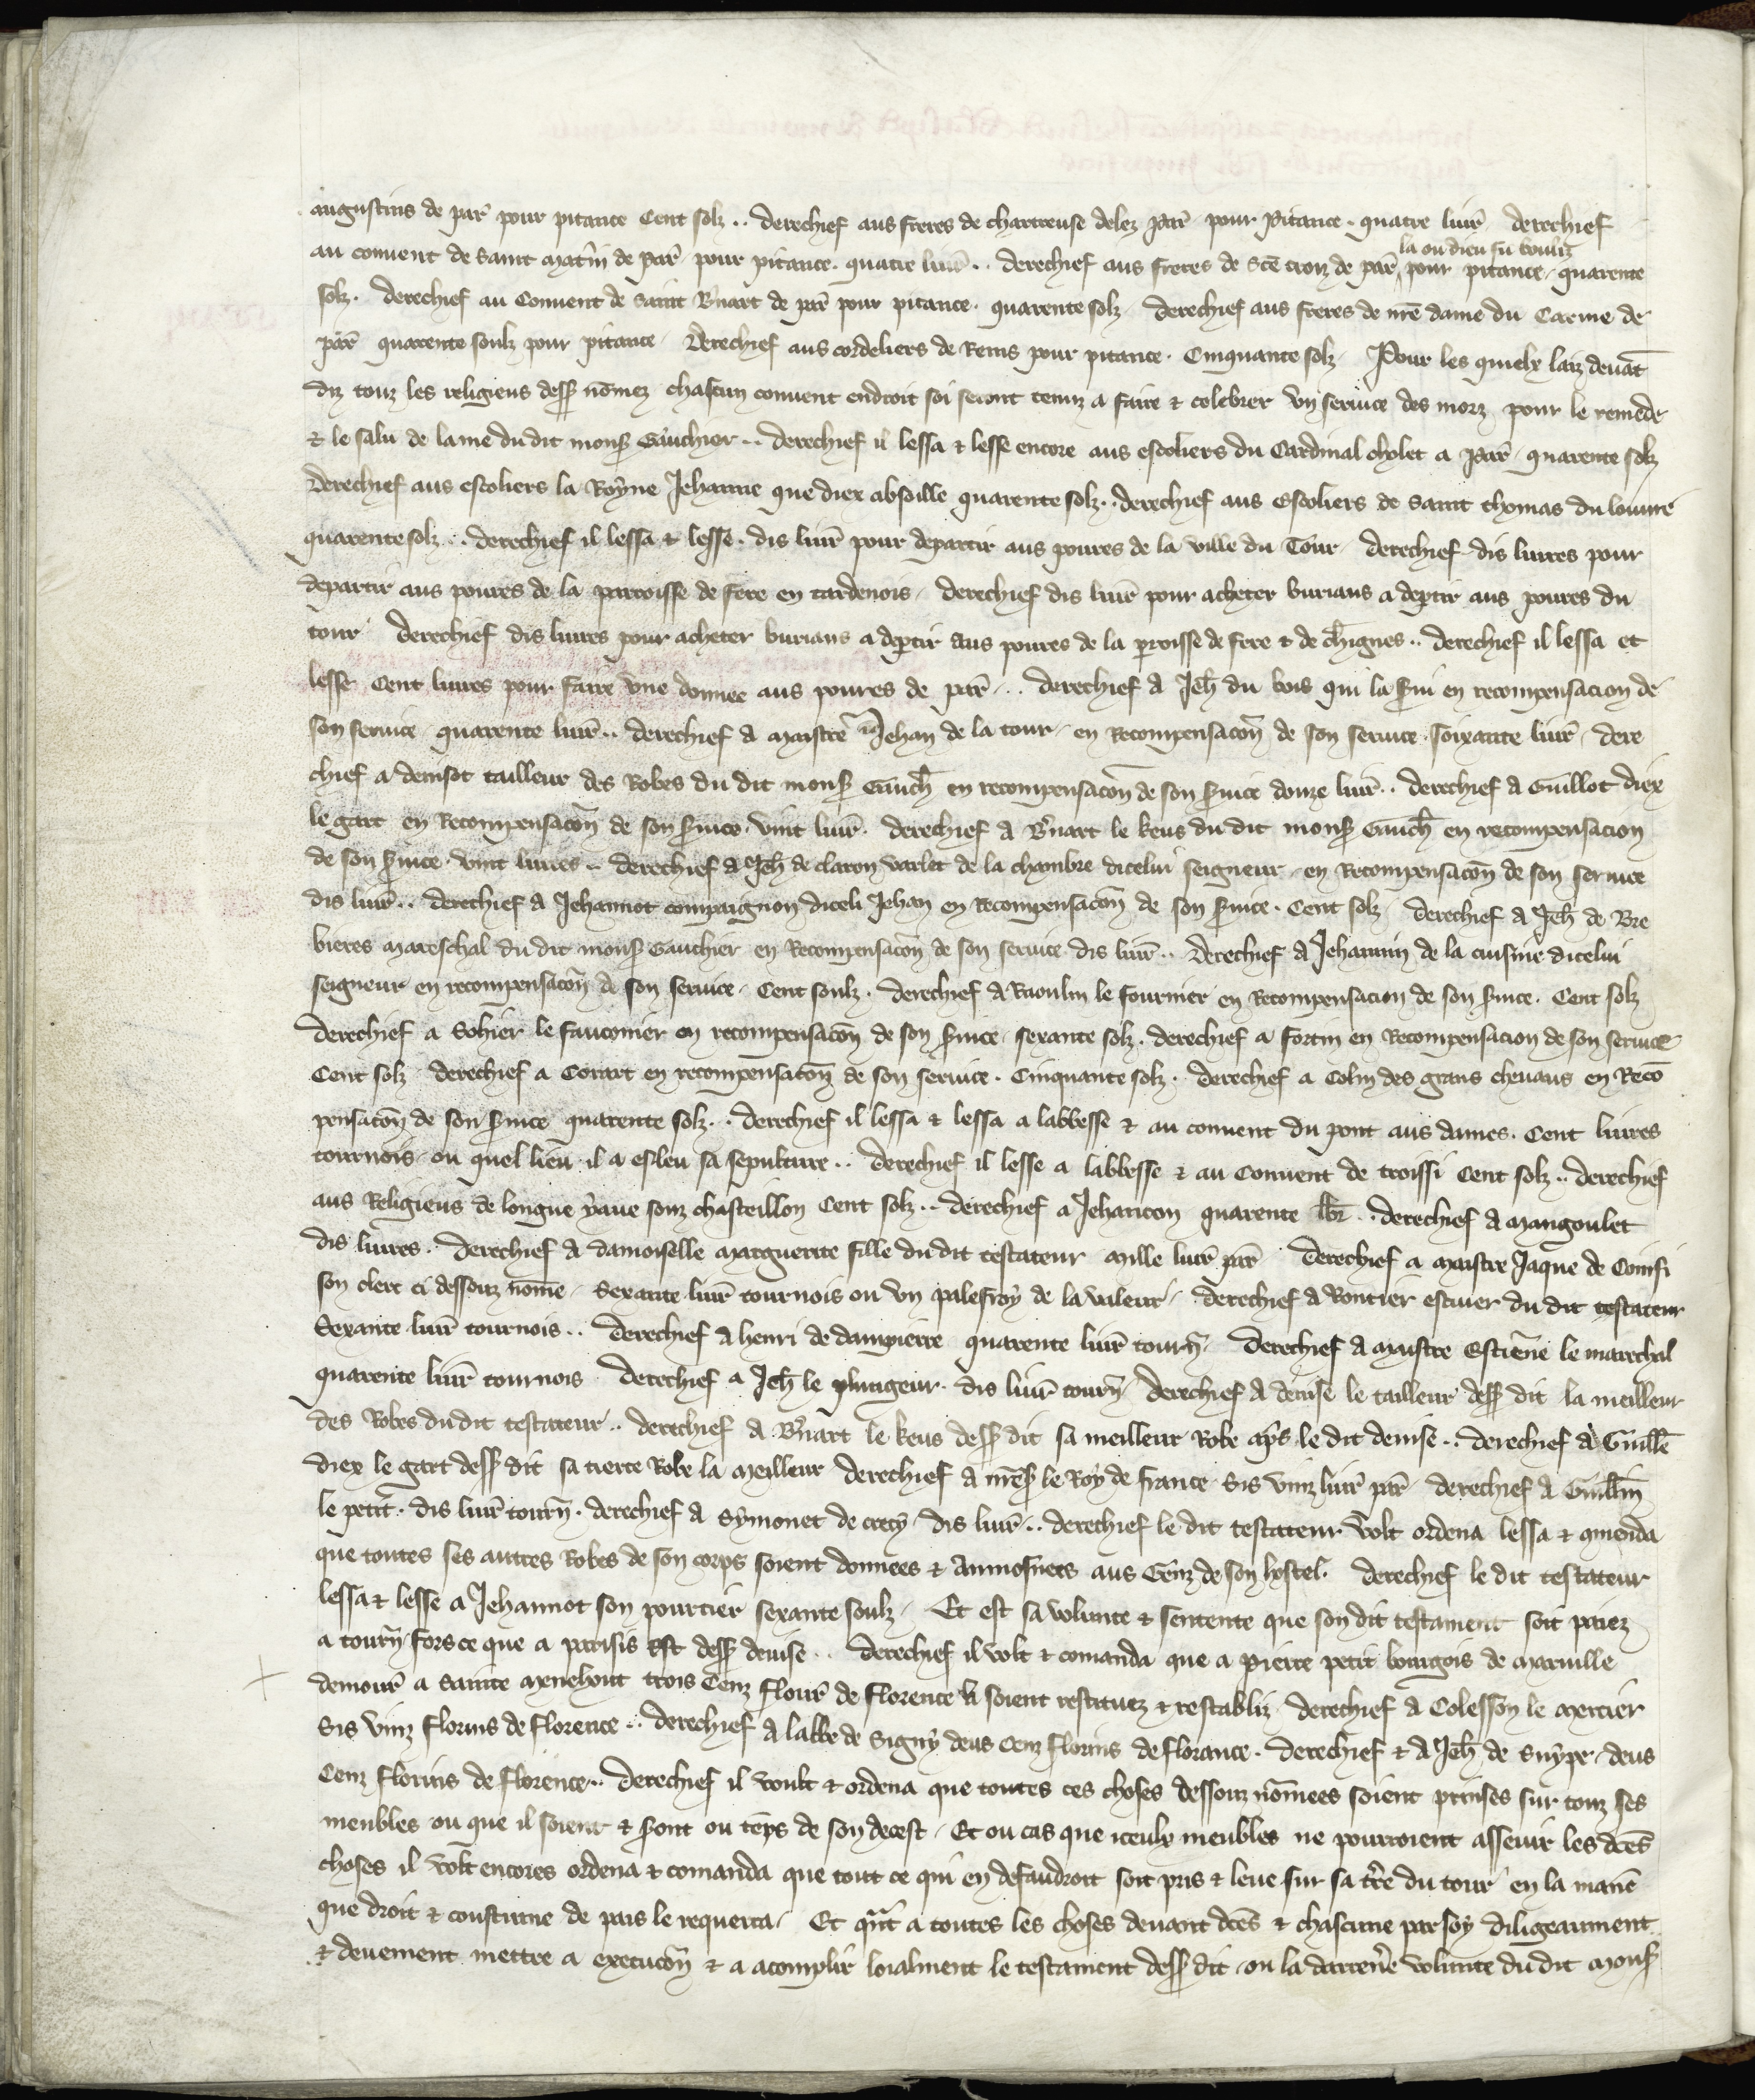 augustins de par̄ pour pitance Cent solz .. derechief aus freres de chartreuse delez par̄ pour pitance . quatre liur̄ derechief
la ou dieu fu bouliz
au conuent de saint mat'in de par̄ pour pitance . quatre liur̄ .. derechief aus freres de Ste croiz de par̄ pour pitance . quarente
solz . derechief au Conuent de saint B'nart de par̄ pour pitance . quarente solz derechief aus freres de nr̄e dame du Carme de
par̄ quarente soulz pour pitance derechief aus cordeliers de Reins pour pitance . Cinquante solz Pour les quielx laiz deuāt
diz touz les religieus dess' nōmez chascun conuent endroit soi seront tenuz a faire & celebrer vn seruice des morz pour le remede
& le salu de lame du dit mons' Gauchier .. derechief il lessa & lesse encore aus escoliers du Cardinal cholet a par̄ quarente solz
derechief aus escoliers la Royne Jehanne que diex absoille quarente solz .. derechief aus Escoliers de saint thomas du louure
quarente solz .. derechief il lessa & lesse . dis liur̄ pour departir aus poures de la ville du Tour derechief dis liures pour
departir aus poures de la parroisse de fere en tardenois derechief dis liur̄ pour acheter buriaus a dep'tir aus poures du
tour derechief dis liures pour acheter buriaus a dep'tir aus poures de la p'roisse de fere & de chignes .. derechief il lessa et
lesse Cent liures pour faire vne donnee aus poures de par̄ .. derechief a Jeh̄ du bois qui la s'ui en recompensacion de
son seruice quarente liur̄ .. derechief a maistre Jehan de la tour en Recompensacōn de son seruice soixante liur̄ dere
chief a denisot tailleur des Robes du dit mons' Gauch̄ en recompensacōn de son s'uice douze liur̄ .. derechief a Guillot diex
le gart en Recompensacōn de son s'uice . vint liur̄ . derechief a B'nart le keus du dit mons' Gauch̄ en recompensacion
de son s'uice . vint liures .. derechief a Jeh̄ de claron varlet de la chambre dicelui seigneur en Recompensacōn de son seruice
dis liur̄ .. derechief a Jehannot compaignon diceli Jehan en Recompensacōn de son s'uice . Cent solz derechief a Jeh̄ de Bre
bieres mareschal du dit mons' Gauchier en Recompensacōn de son seruice dis liur̄ .. derechief a Jehannin de la cuisine dicelui
seigneur en recompensacōn de son seruice . Cent soulz . derechief a Raoulin le fournier en Recompensacion de son s'uice . Cent solz
derechief a Sohier le fauconier en recompensacōn de son s'uice sexante solz . derechief a fortin en Recompensacion de son seruice
Cent solz derechief a Corart en recompensacōn de son seruice . Cinquante solz . derechief a Colin des grans cheuaus en Recō
pensacōn de son s'uice quarente solz .. derechief il lessa & lessa a labbesse & au conuent du pont aus dames . Cent liures
tournois ou quel lieu il a esleu sa sepulture .. derechief il lesse a labbesse & au Conuent de troissi Cent solz .. derechief
aus Religieus de longue yaue souz chasteillon Cent solz .. derechief a Jehancon quarente lbr̄ .. derechief a mangoulet
dis liures . derechief a damoiselle marguerite fille du dit testateur mille liur̄ par̄ derechief a maistre Jaque de Coinsi
son clerc ci dessouz nōme . Sexante liur̄ tournois ou vn palefroy de la valeur . derechief a Rontier escuier du dit testateur
Sexante liur̄ tournois .. derechief a henri de dampierre quarente liur̄ tourn̄ derechief a maistre Estiēne le marechal
quarente liur̄ tournois derechief a Jeh̄ le plungeur . dis liur̄ tourn̄ derechief a denise le tailleur dess' dit la meilleur
des Robes du dit testateur .. derechief a B'nart le keus dess' dit sa meilleur Robe ap's le dit denise .. derechief a Guill'e
diex le gart dess' dit sa tierce Robe la meilleur derechief a mēs' le Roy de france Sis vinz liur̄ par̄ derechief a Guill'in
le petit . dis liur̄ tourn̄ . derechief a Symonet de crecy dis liur̄ .. derechief le dit testateur volt ordena lessa & cōmenda
que toutes ses autres Robes de son corps soient donnees & aumosnees aus Genz de son hostel . derechief le dit testateur
lessa & lesse a Jehannot son pourtier sexante soulz Et est sa volunte & sentente que son dit testament soit paiez
a tourn̄ fors ce que a parisis est dess' deuise .. derechief il volt & comanda que a pierre petit bourgois de maruille
demour̄ a Sainte menehout trois Cenz flour̄ de florence li soient restituez & restabliz derechief a Colesson le mercier
Sis vinz florins de florence .. derechief a labbe de Signy deus Cenz florins de florance . derechief & a Jeh̄ de Suype deus
Cenz florins de florence .. derechief il voult & ordena que toutes ces choses dessouz nōmees soient prinses sur touz ses
meubles ou que il soient & s'ont ou tēps de son decest Et ou cas que iceulx meubles ne pourroient asseuir les dc̄es
choses il volt encores ordena & comanda que tout ce qui en defaudroit soit pris & leue sur sa tr̄e du tour en la manie
que droit & coustume de pais le requerra Et qn̄t a toutes les choses deuant dc̄es & chascune par soy diligeaument
& deuement mettre a execucōn & a acomplir loialment le testament dess' dit ou la darrenr̄e volunte du dit mons'